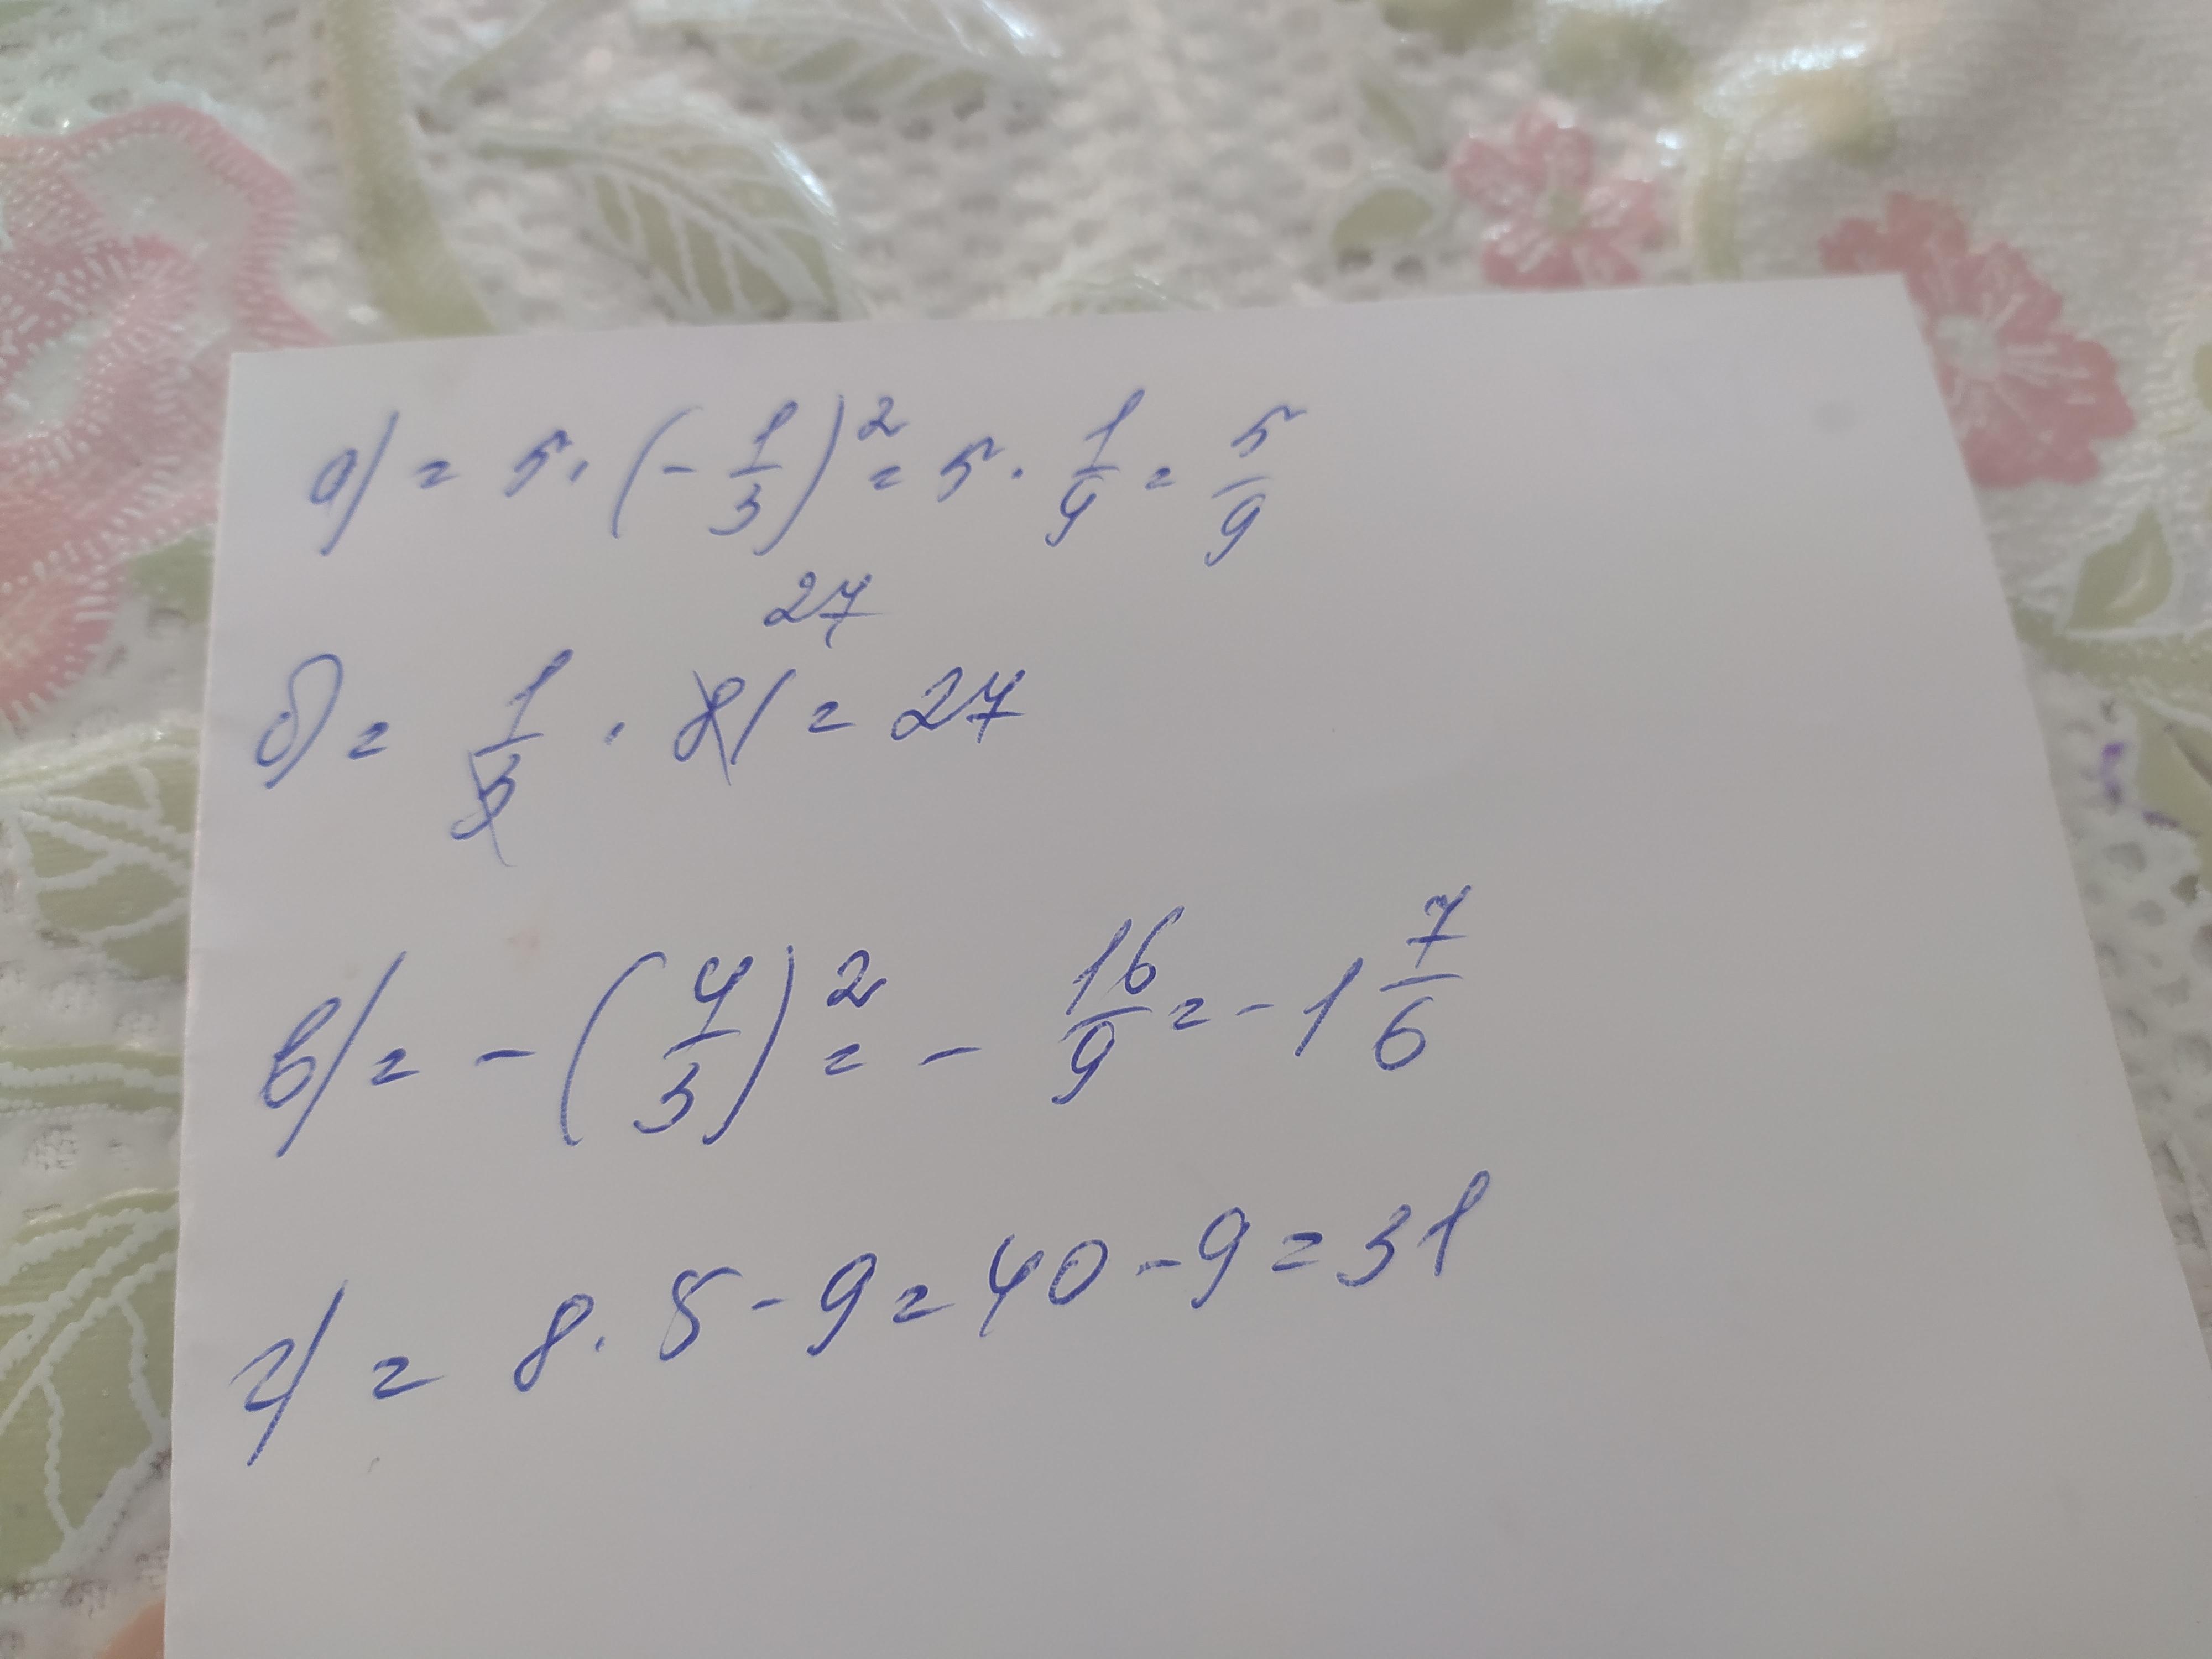 а) = 5 · (-1/3)² = 5 · 1/9 = 5/9
27
б) = 1/3 · 81 = 27
в) = - (4/3)² = - 16/9 = -1 7/6
г) = 8 · 5 - 9 = 40 - 9 = 31